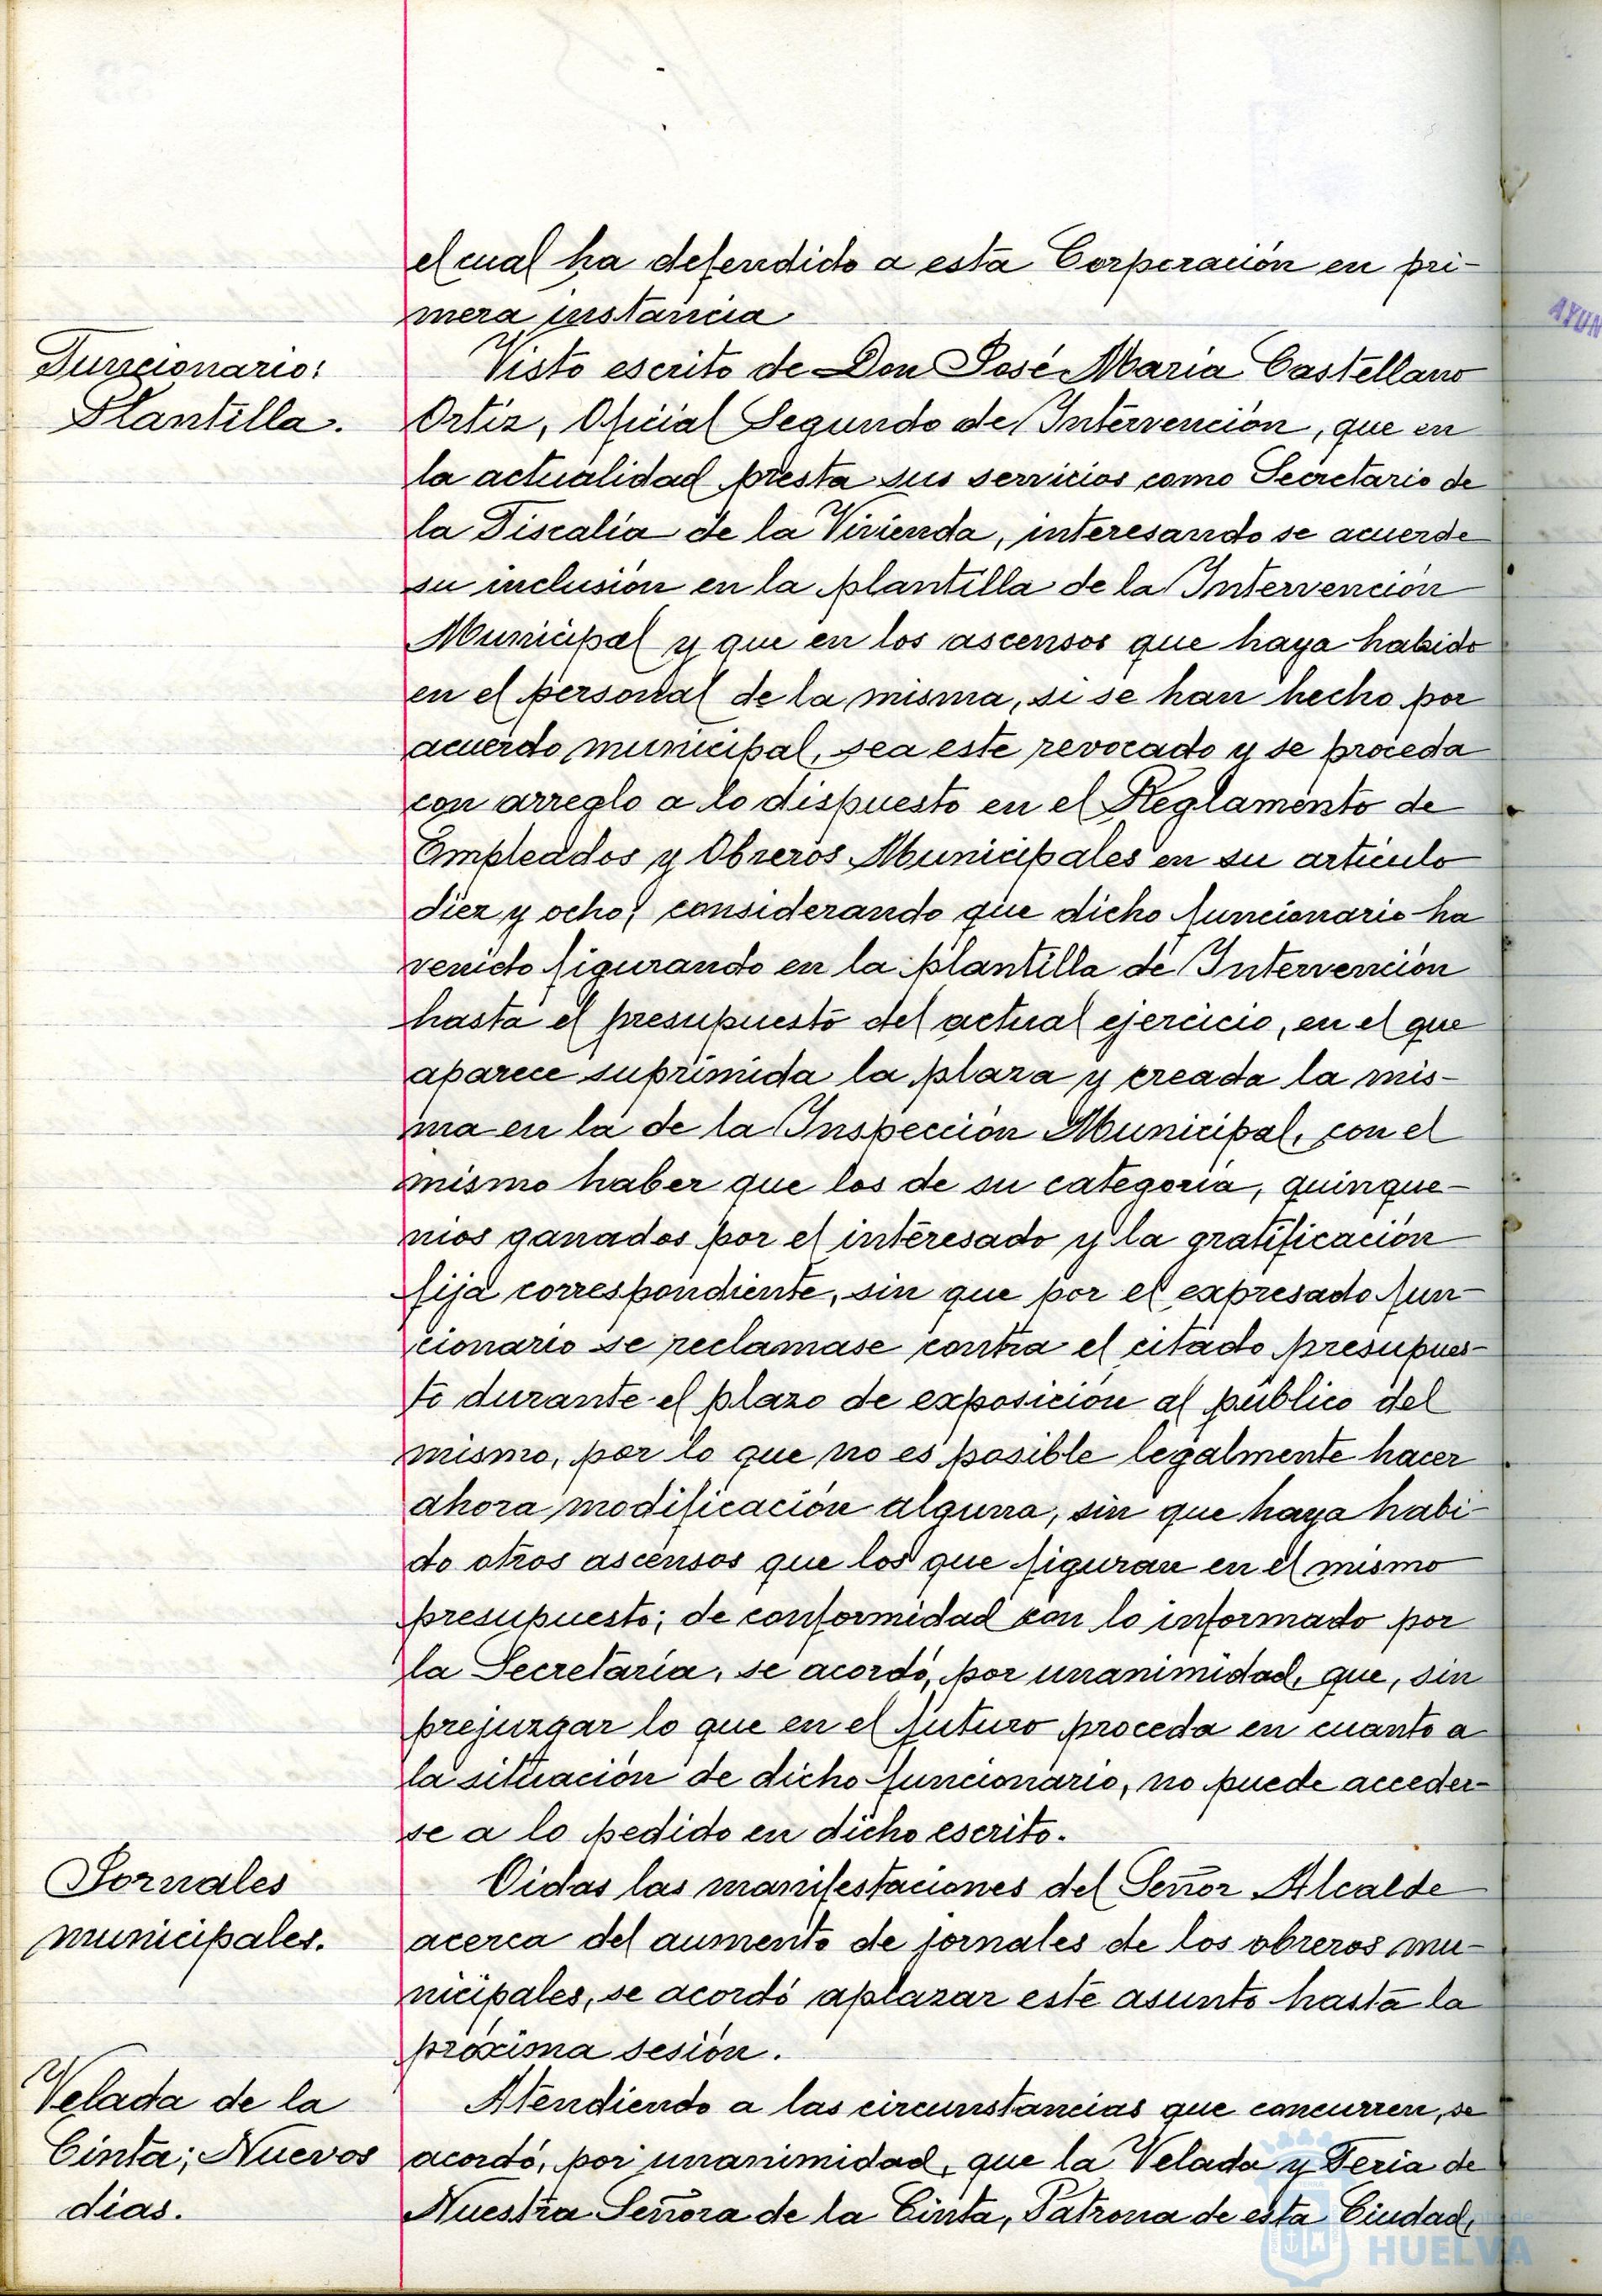 el cual ha defendido a esta Corporación en pri-
mera instancia
Funcionario:
Plantilla.
Visto escrito de Don José María Castellano
Ortiz, Oficial Segundo de Intervención, que en
la actualidad presta sus servicios como Secretario de
la Fiscalía de la Vivienda, interesando se acuerde
su inclusión en la plantilla de la Intervención
Municipal y que en los ascensos que haya habido
en el personal de la misma, si se han hecho por
acuerdo municipal, sea este revocado y se proceda
con arreglo a lo dispuesto en el Reglamento de
Empleados y Obreros Municipales en su artículo
diez y ocho; considerando que dicho funcionario ha
venido figurando en la plantilla de Intervención
hasta el presupuesto del actual ejercicio, en el que
aparece suprimida la plaza y creada la mis-
ma en la de la Inspección Municipal, con el
mismo haber que los de su categoría, quinque-
nios ganados por el interesado y la gratificación
fija correspondiente, sin que por el expresado fun-
cionario se reclamase contra el citado presupues-
to durante el plazo de exposición al público del
mismo, por lo que no es posible legalmente hacer
ahora modificación alguna, sin que haya habi-
do otros ascensos que los que figuran en el mismo
presupuesto; de conformidad con lo informado por
la Secretaría, se acordó, por unanimidad, que, sin
prejuzgar lo que en el futuro proceda en cuanto a
la situación de dicho funcionario, no puede acceder-
se a lo pedido en dicho escrito.
Jornales
municipales.
Oidas las manifestaciones del Señor Alcalde
acerca del aumento de jornales de los obreros mu-
nicipales, se acordó aplazar este asunto hasta la
próxima sesión.
Velada de la
Cinta; Nuevos
dias.
Atendiendo a las circunstancias que concurren, se
acordó, por unanimidad, que la Velada y Feria de
Nuestra Señora de la Cinta, Patrona de esta Ciudad,
AYUN
HUELVA